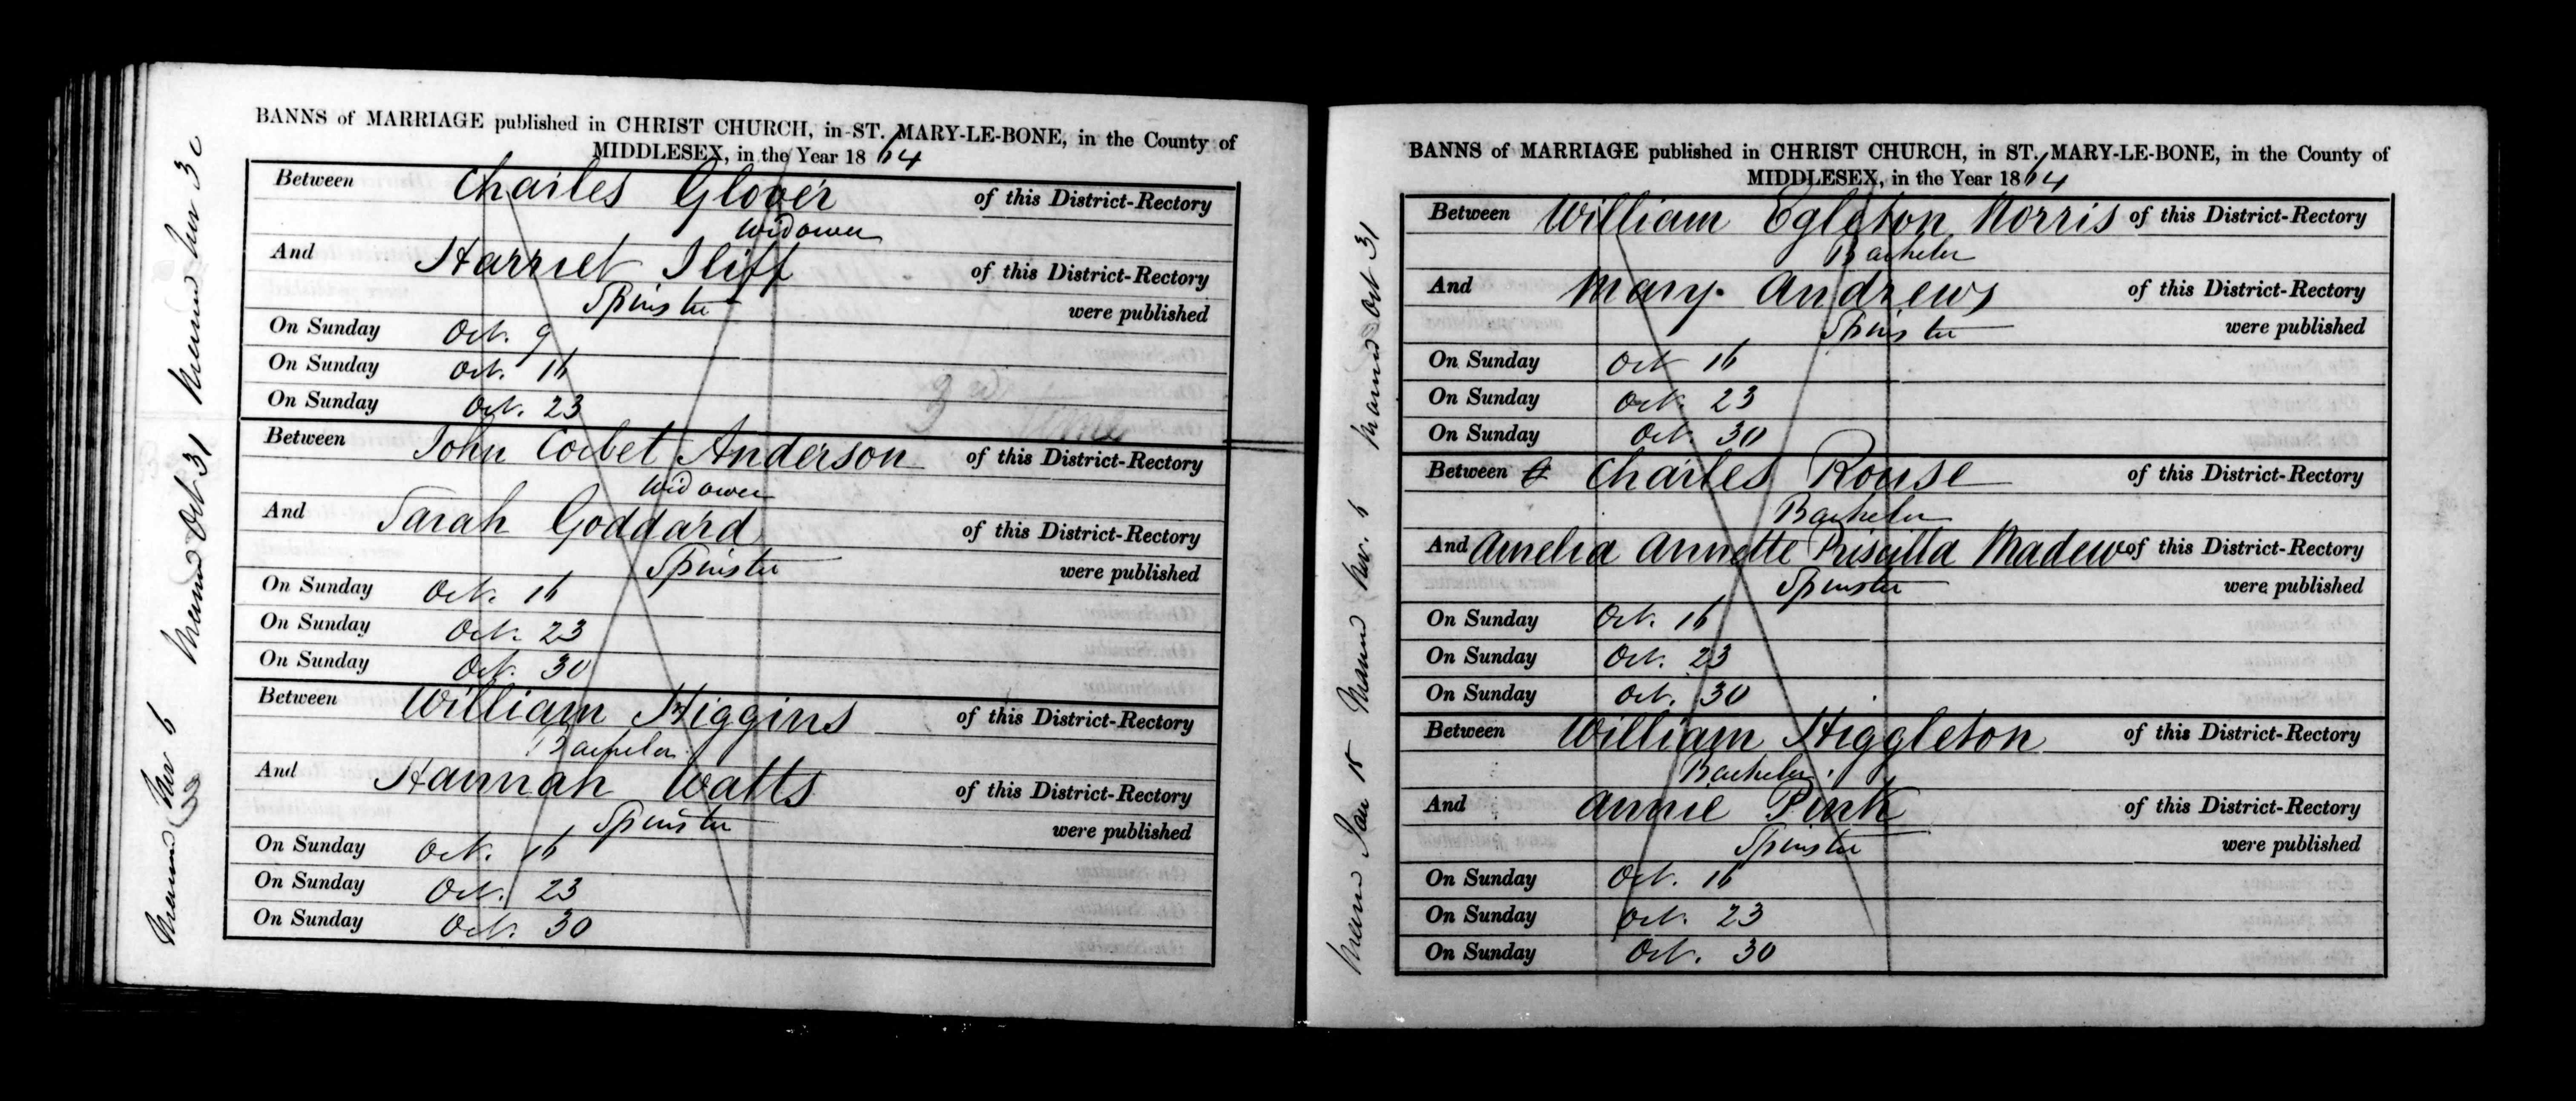 BANNS of MARRIAGE published in CHRIST CHURCH, in ST. MARY-LE-BONE, in the County of
MIDDLESEX, in the Year 1864
Between Charles Glover of this District-Rectory
Widower
And Harriet Iliff of this District-Rectory
Spinster were published
On Sunday Oct. 9
On Sunday Oct. 16
On Sunday Oct. 23
3rd time
Between John Corbet Anderson of this District-Rectory
Widower
And Sarah Goddard of this District-Rectory
Spinster were published
On Sunday Oct. 16
On Sunday Oct. 23
On Sunday Oct. 30
Between William Higgins of this District-Rectory
Bachelor
And Hannah Watts of this District-Rectory
Spinster were published
On Sunday Oct. 16
On Sunday Oct. 23
On Sunday Oct. 30
Married Nov 30
Married Oct 31
Married Nov 6
BANNS of MARRIAGE published in CHRIST CHURCH, in ST. MARY-LE-BONE, in the County of
MIDDLESEX, in the Year 1864
Between William Egleton Norris of this District-Rectory
Bachelor
And Mary Andrews of this District-Rectory
Spinster were published
On Sunday Oct 16
On Sunday Oct. 23
On Sunday Oct. 30
Between Charles Rouse of this District-Rectory
Bachelor
And Amelia Annette Priscilla Madew of this District-Rectory
Spinster were published
On Sunday Oct. 16
On Sunday Oct. 23
On Sunday Oct. 30
Between William Higgleton of this District-Rectory
Bachelor
And Annie Pink of this District-Rectory
Spinster were published
On Sunday Oct. 16
On Sunday Oct. 23
On Sunday Oct. 30
Married Oct 31
Married Nov. 6
Married Jan 15